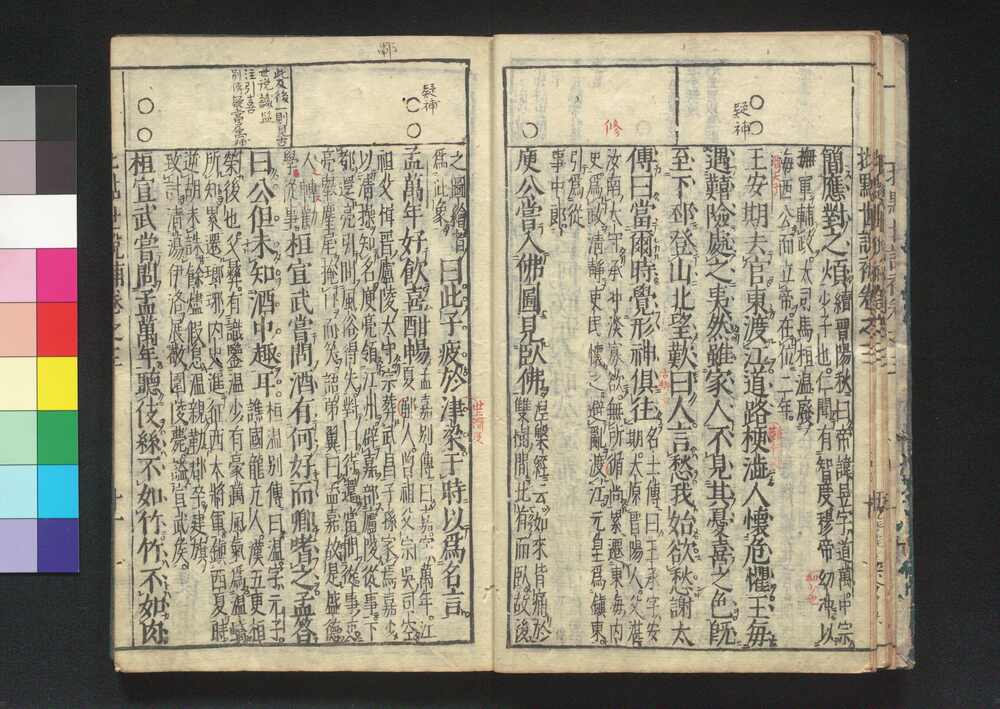 批點世說補卷之三
簡應對之煩 續晉陽秋曰帝諱昱字道萬中宗
少子也仁聞有智度穆帝幼冲以
撫軍輔政大司馬桓温廢
海西公而立帝在位二年
王安期去官東渡江道路梗澁人懷危懼王每
遇艱險處之夷然雖家人不見其憂喜之色既
至下邳登山北望歎曰人言愁我始欲愁謝太
傅曰當爾時覺形神俱往 名士傳曰王承字安
期太原晉陽人父湛
汝南太守承冲淡寡欲無所循尚累遷東海内
史爲政清靜吏民懷之避亂渡江元皇爲鎮東
引爲從
事中郎
庾公嘗入佛圖見臥佛 涅槃經云如來背痛於
雙樹間北首而臥故後
之圖繪
爲此象 曰此子疲於津梁于時以爲名言
孟萬年好飲喜酣暢 孟嘉別傳曰嘉字萬年江
夏鄳人曾祖父宗吳司空
祖父揖晉廬陵太守宗葬武昌子孫家焉嘉少
以清操知名庾亮領江州辟嘉部廬陵從事下
都還亮引問風俗得失對曰待還當問從事吏
亮舉麈尾掩口而笑語弟翼曰孟嘉故是盛德
人轉勸
學從事 桓宣武嘗問酒有何好而卿嗜之孟答
曰公但未知酒中趣耳 桓溫別傳曰溫字元子
譙國龍亢人漢五更桓
榮後也父彝有識鑒溫少有豪邁風氣爲溫嶠
所知累遷琅琊内史進征西大將軍鎮西夏時
逆胡未誅餘燼假息溫親勒郡卒建旗
致討清蕩伊洛展敬園陵薨謚宣武侯
桓宣武嘗問孟萬年聽伎絲不如竹竹不如肉
疑神
修
疑神
此及後一則見古
世說識鑒
注引嘉
別傳